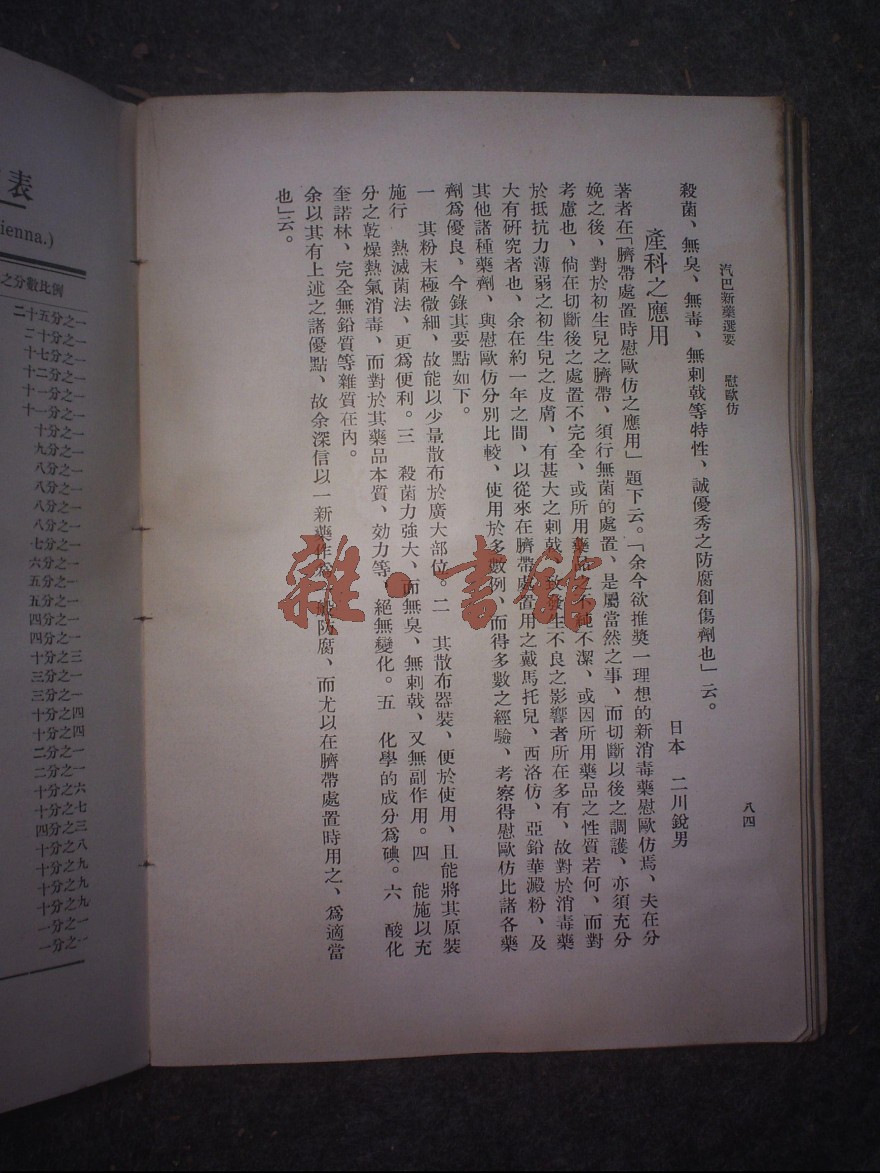 汽巴新藥選要　慰歐仿
八四
殺菌、無臭、無毒、無刺戟等特性、誠優秀之防腐創傷劑也」云。
產科之應用
日本　二川銳男
著者在「臍帶處置時慰歐仿之應用」題下云。「余今欲推獎一理想的新消毒藥慰歐仿焉、夫在分
娩之後、對於初生兒之臍帶、須行無菌的處置、是屬當然之事、而切斷以後之調護、亦須充分
考慮也、倘在切斷後之處置不完全、或所用藥品之不純不潔、或因所用藥品之性質若何、而對
於抵抗力薄弱之初生兒之皮膚、有甚大之刺戟、致發生不良之影響者所在多有、故對於消毒藥
大有研究者也、余在約一年之間、以從來在臍帶處置用之戴馬托兒、西洛仿、亞鉛華澱粉、及
其他諸種藥劑、與慰歐仿分別比較、使用於多數例、而得多數之經驗、考察得慰歐仿比諸各藥
劑為優良、今錄其要點如下。
一　其粉末極微細、故能以少量散布於廣大部位。二　其散布器裝、便於使用、且能將其原裝
施行　熱滅菌法、更為便利。三　殺菌力強大、而無臭、無刺戟、又無副作用。四　能施以充
分之乾燥熱氣消毒、而對於其藥品本質、効力等、絕無變化。五　化學的成分為碘。六　酸化
奎諾林、完全無鉛質等雜質在內。
余以其有上述之諸優點、故余深信以一新藥作為一般防腐、而尤以在臍帶處置時用之、為適當
也」云。
雜·書館
表
ienna.)
之分數比例
二十五分之一
二十分之一
十七分之一
十二分之一
十一分之一
十一分之一
十分之一
九分之一
八分之一
八分之一
八分之一
八分之一
七分之一
六分之一
五分之一
五分之一
四分之一
四分之一
十分之三
三分之一
三分之一
十分之四
十分之四
二分之一
二分之一
十分之六
十分之七
四分之三
十分之八
十分之九
十分之九
十分之九
一分之一
一分之一